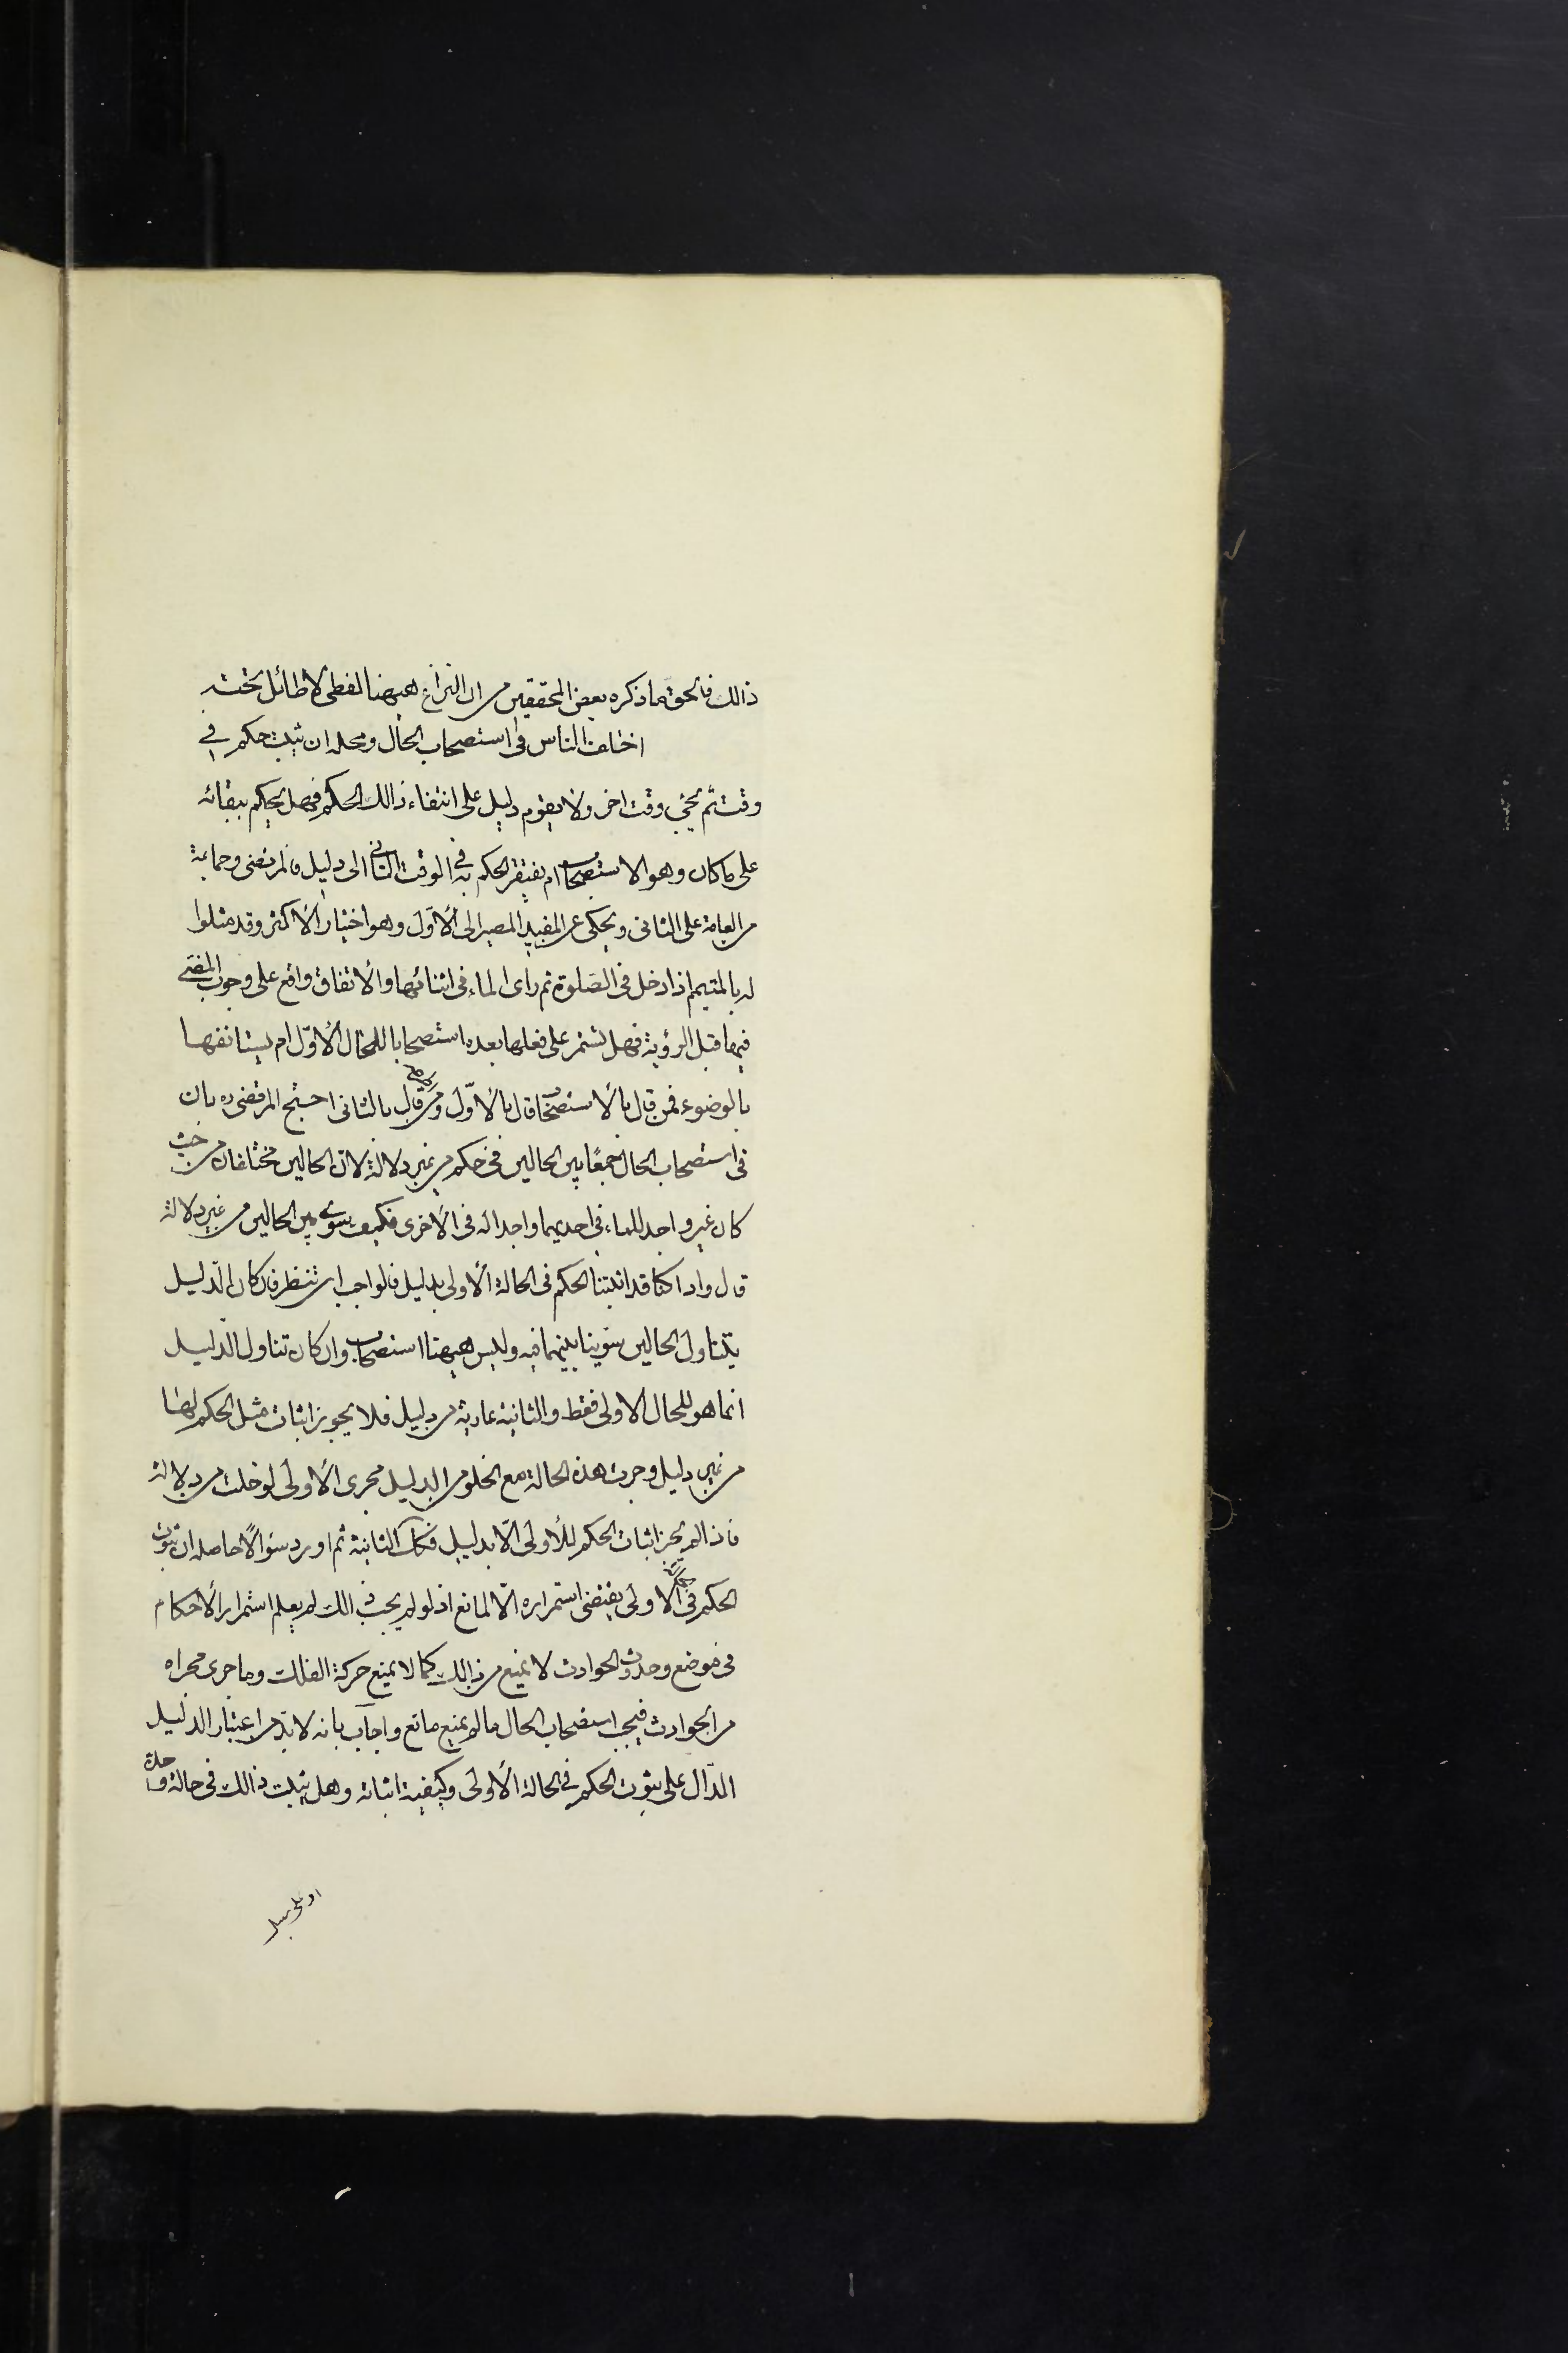 ذالك فالحق ما ذكره بعض المحققين من ان النزاع هيهنا لفظى لا طائل تحته
اختلف الناس فى استصحاب الحال ومحله ان يثبت حكم فى
وقت ثم يجئ وقت اخر ولا يقوم دليل على انتفاء ذالك الحكم فهل يحكم ببقائه
على ما كان وهو الاستصحاب ام يفتقر الحكم به فى الوقت الثانى الى دليل فالمرتضى وجماعة
من العامة على الثانى ويحكى عن المفيد المصير الى الأوّل وهو اختيار الأكثر وقد مثلوا
له بالمتيمم اذا دخل فى الصّلوة ثم راى الماء فى اثنائها والأتفاق واقع على وجوب المضى
فيها قبل الرؤية فهل يستمر على فعلها بعده استصحابا للحال الأوّل ام يستانفها
بالوضوء فمن قال بالأستصحاب قال بالأوّل ومن قال بالثانى احتج المرتضى ره بان
فى استصحاب الحال جمعًا بين الحالين فى حكم من غير دلالة لان الحالين مختلفان من حيث
كان غير واجد للماء فى احديهما واجدا له فى الأخرى فكيف يسوى بين الحالين من غير دلالة
قال واذا كنا قد اثبتنا الحكم فى الحالة الأولى بدليل فالواجب ان ننظر فان كان الدّليل
يتناول الحالين سوّينا بينهما فيه وليس هيهنا استصحاب وان كان تناول الدّليل
انما هو للحال الأولى فقط والثانية عارية من دليل فلا يجوز اثبات مثل الحكم لها
من غير دليل وجرت هذه الحالة مع الخلو من الدليل مجرى الأولى لو خلت من دلالة
فاذا لم يجز اثبات الحكم للأولى الّا بدليل فكذلك الثانية ثم اورد سؤالًا حاصله ان ثبوت
الحكم فى الأولى يقتضى استمراره الّا لمانع اذ لو لم يجب ذالك لم يعلم استمرار الأحكام
فى موضع وحدوث الحوادث لا يمنع من ذالك كما لا يمنع حركة الفلك وما جرى مجراه
من الحوادث فيجب استصحاب الحال ما لم يمنع مانع واجاب بانه لا بدّ من اعتبار الدّليل
الدّال على ثبوت الحكم فى الحالة الأولى وكيفية اثباته وهل يثبت ذالك فى حالة واحدة